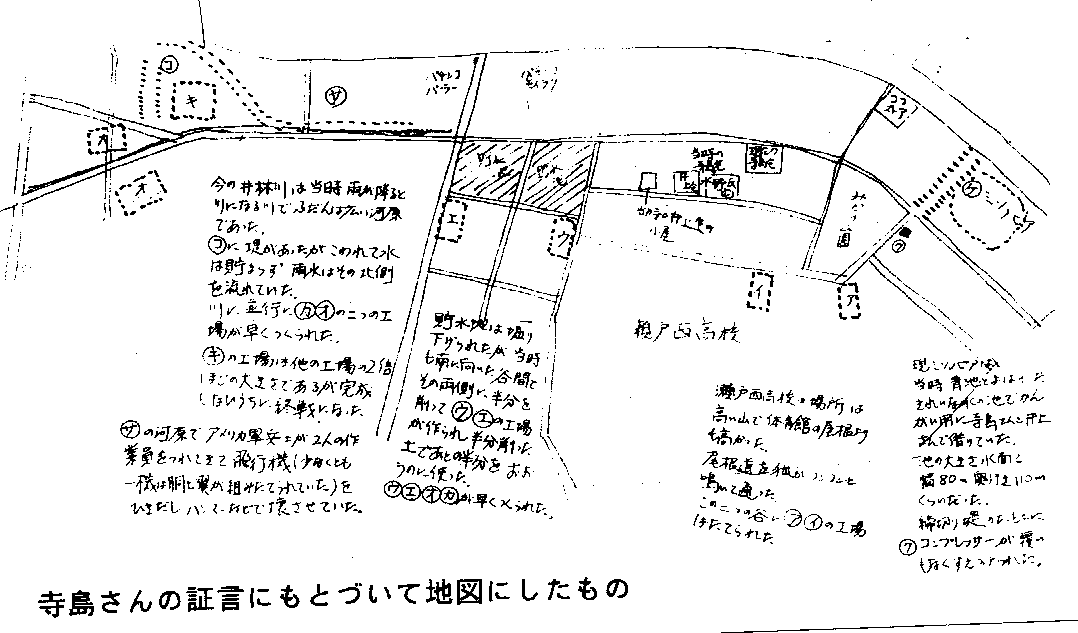 コ
キ
サ
パチンコ
パーラー
カ
オ
ココ
ストア
貯水
エ
ウ
当時の
井上
小屋
イ
ア
ケ
ク
瀬戸西高校
今の井林川は当時雨が降ると
川になる川でふだんは広い河原
であった。
コに堤があったがこわれて水
は貯まらず雨水はその北側
を流れていた。
川に並行にカオの二つの工
場が早くつくられた。
キの工場は他の工場の2倍
ほどの大きさであるが完成
しないうちに終戦になった
サの河原でアメリカ軍兵士が2人の作
業員をつれてきて飛行機(少なくとも
一機は胴と翼が組みたてられていた)を
ひきだしハンマーなどで壊させていた。
貯水地は堀り
下げられたが当時
も南に向いた谷間で
その両側に半分を
削ってウエの工場
が作られ半分削った
土であとの半分をおお
うのに使った。
ウエオカが早くつくられた。
瀬戸西高校の場所は
高い山で体育館の屋根より
も高かった。
尾根道を狐がコンコンと
鳴いて通った
この二つの谷にアイの工場
はたてられた
当時青池とよばれた
きれいな
がい用に寺島さんと井上
さんで借りていた。
池の大きさ水面で
幅80m奥行き110m
くらいだった。
クコンプレッサーが覆い
もなくすえつけられた。
寺島さんの証言にもとづいて地図にしたもの